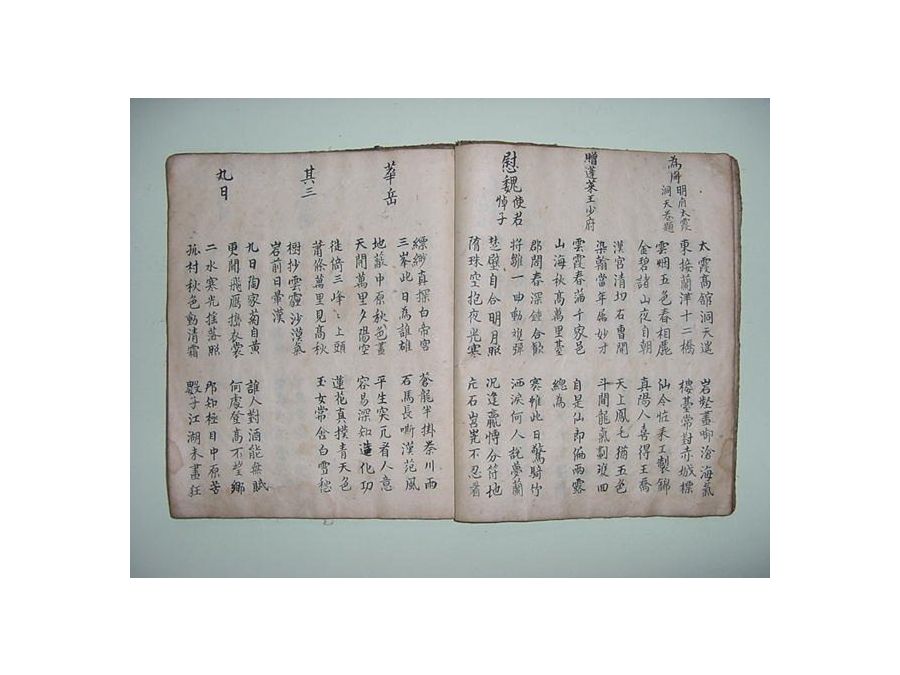 明府太霞
洞天卷題
太霞高舘洞天遥 岩壑畫啣滄海氣
東接蘭洋十二橋 樓臺常對赤城標
雲烟五色春相麗 仙令恠来工製錦
金碧諸山夜自朝 真陽人喜得王喬
贈蓬萊王少府
漢官清切石曹開 天上鳳毛猶五色
染翰當年属妙才 斗間龍氣劃雙回
雲霞春滿千家邑 自是仙郎偏雨露
山海秋高萬里臺 總為
慰魏使君
悼子
郡閣春深鍾合歡 寒帷此日驚騎竹
將雛一曲動哀彈 洒淚何人說夢蘭
楚璧自合明月照 况逢嬴愽分符地
隋珠空抱夜光寒 片石 不忍看
華岳
縹緲真探白帝宮 蒼龍半掛秦川雨
三峯此日為誰雄 石馬長嘶漢苑風
地蔵中原秋色盡 平生突兀看人意
天開萬里夕陽空 容易深知造化功
其三
徙倚三峰〻上頭 蓮花真撲青天色
蕭條萬里見高秋 玉女常含白雪愁
樹抄雲霾沙漠氣
岩前日暈漢
九日
九日陶家菊自黄 誰人對酒能無賦
更聞飛鴈擣衣裳 何處登高不望鄉
二水寒光摇落照 那知極目中原苦
孤村秋色動清霜 數子江湖未盡狂